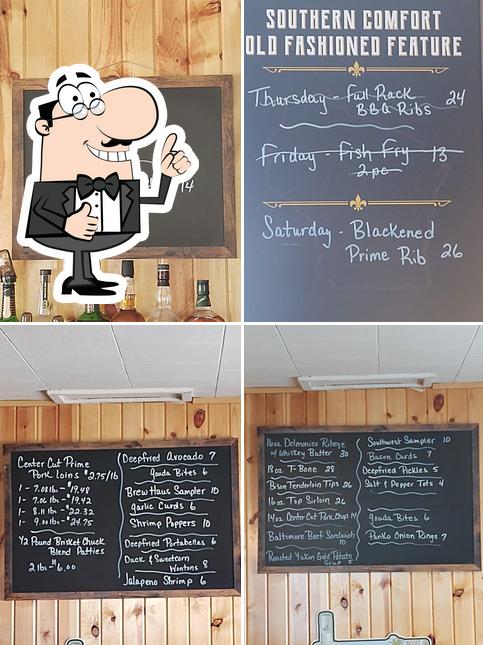 14
SOUTHERN COMFORT
OLD FASHIONED FEATURE
Thursday - Full Rack 24
BBQ Ribs
Friday - Fish Fry 13
2pc
Saturday - Blackened
Prime Rib 26
Center Cut Prime
Pork Loins $2.75/lb
1 - 7.08 lbs - $19.48
1 - 7.06 lbs - $19.42
1 - 8.11 lbs - $22.32
1 - 9.00 lbs - $24.75
1/2 Pound Brisket Chuck
Blend Patties
2 lbs - $6.00
Deepfried Avocado 7
Gouda Bites 6
Brew Haus Sampler 10
garlic Curds 6
Shrimp Poppers 10
Deepfried Portabellas 6
Duck & Sweetcorn
Wontons 8
Jalapeno Shrimp 6
16oz. Delmonico Ribeye
w/ Whiskey Butter 30
18oz. T-Bone 28
Brew Tenderloin Tips 26
16oz Top Sirloin 26
14oz. Center Cut Pork Chop 19
Baltimore Beef Sandwich
10
Roasted Yukon Gold Potato
Soup 5
Southwest Sampler 10
Bacon Curds 7
Deepfried Pickles 5
Salt & Pepper Tots 4
Gouda Bites 6
Panko Onion Rings 7